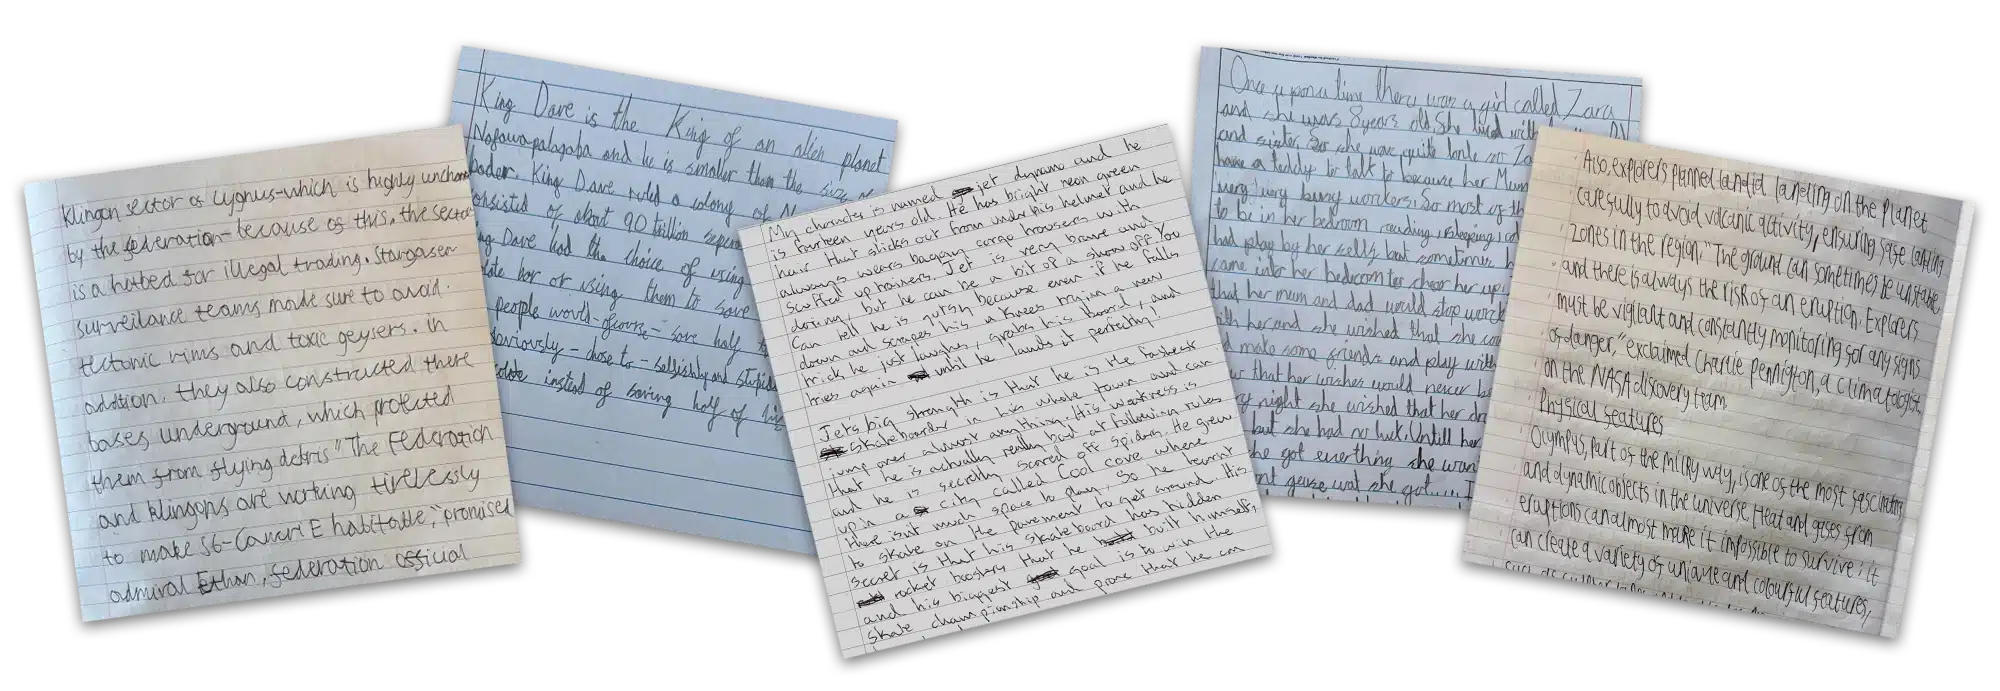 Klingon sector of cygnus-which is highly
by the federation-because of this, the sector
is a hotbed for illegal trading. Stargaser
surveilance teams made sure to avoid.
tectonic rims and toxic geysers. in
addtion, they also constructed there
bases underground, which protected
them from flying debris "The Federation
and klingons are working tirelessly
to make 56-Cancri E habitable," promised
admiral Ethan, federation official
King Dave is the King of an alien planet
and he is smaller than the size of
King Dave ruled a colony of
of about 90 trillion
Dave had the choice of using
or using them to save
people would-ofcourse-save half
obviously-chose to-selfishly and
instead of saving half of his
My character is named jet dynamo and he
is fourteen years old. He has bright neon green
hair that sticks out from under his helmet and he
always wears baggy cargo trousers with
scuffed up trainers. Jet is very brave and
daring, but he can be a bit of a show off. You
can tell he is gutsy because even if he falls
down and scrapes his knees tryin a new
trick he just laughs, grabs his board, and
tries again until he lands it perfectly!
Jets big strength is that he is the fastest
skateboarder in his whole town and can
jump over almost anything. His weakness is
that he is actually really bad at following rules
and he is secretly scared off spiders. He grew
up in a city called Cool cove where
there isnt much space to play, so he learnt
to skate on the pavement to get around. His
secret is that his skateboard has hidden
rocket boosters that he built himself,
and his biggest goal is to win the
skate championship and prove that he can
Once upon a time there was a girl called Zara
and she was 8 years old. She lived with
and sister. So she was quite
have a teddy to talk to because her Mum
very very busy workers. So most of the
to be in her bedroom reading, sleeping,
had play by her selfs but sometimes
came into her bedroom to cheer her up
that her mum and dad would stop
with her and she wished that she
make some friends and play with
that her wishes would never
night she wished that her
but she had no luck. Untill her
she got everthing she
geuse wat she got....
Also, explorers planned candid landing on the planet
carefully to avoid volcanic activity, ensuring safe landing
zones in the region. "The ground can sometimes be unstable
and there is always the risk of an eruption. Explorers
must be vigilant and constantly monitoring for any signs
of danger," exclaimed Charlie Pennington, a climatologist,
on the NASA discovery team.
Physical features
Olympus, part of the milky way, is one of the most fascinating
and dynamic objects in the universe. Heat and gases from
eruptions can almost make it impossible to survive: it
can create a variety of unique and colourful features,